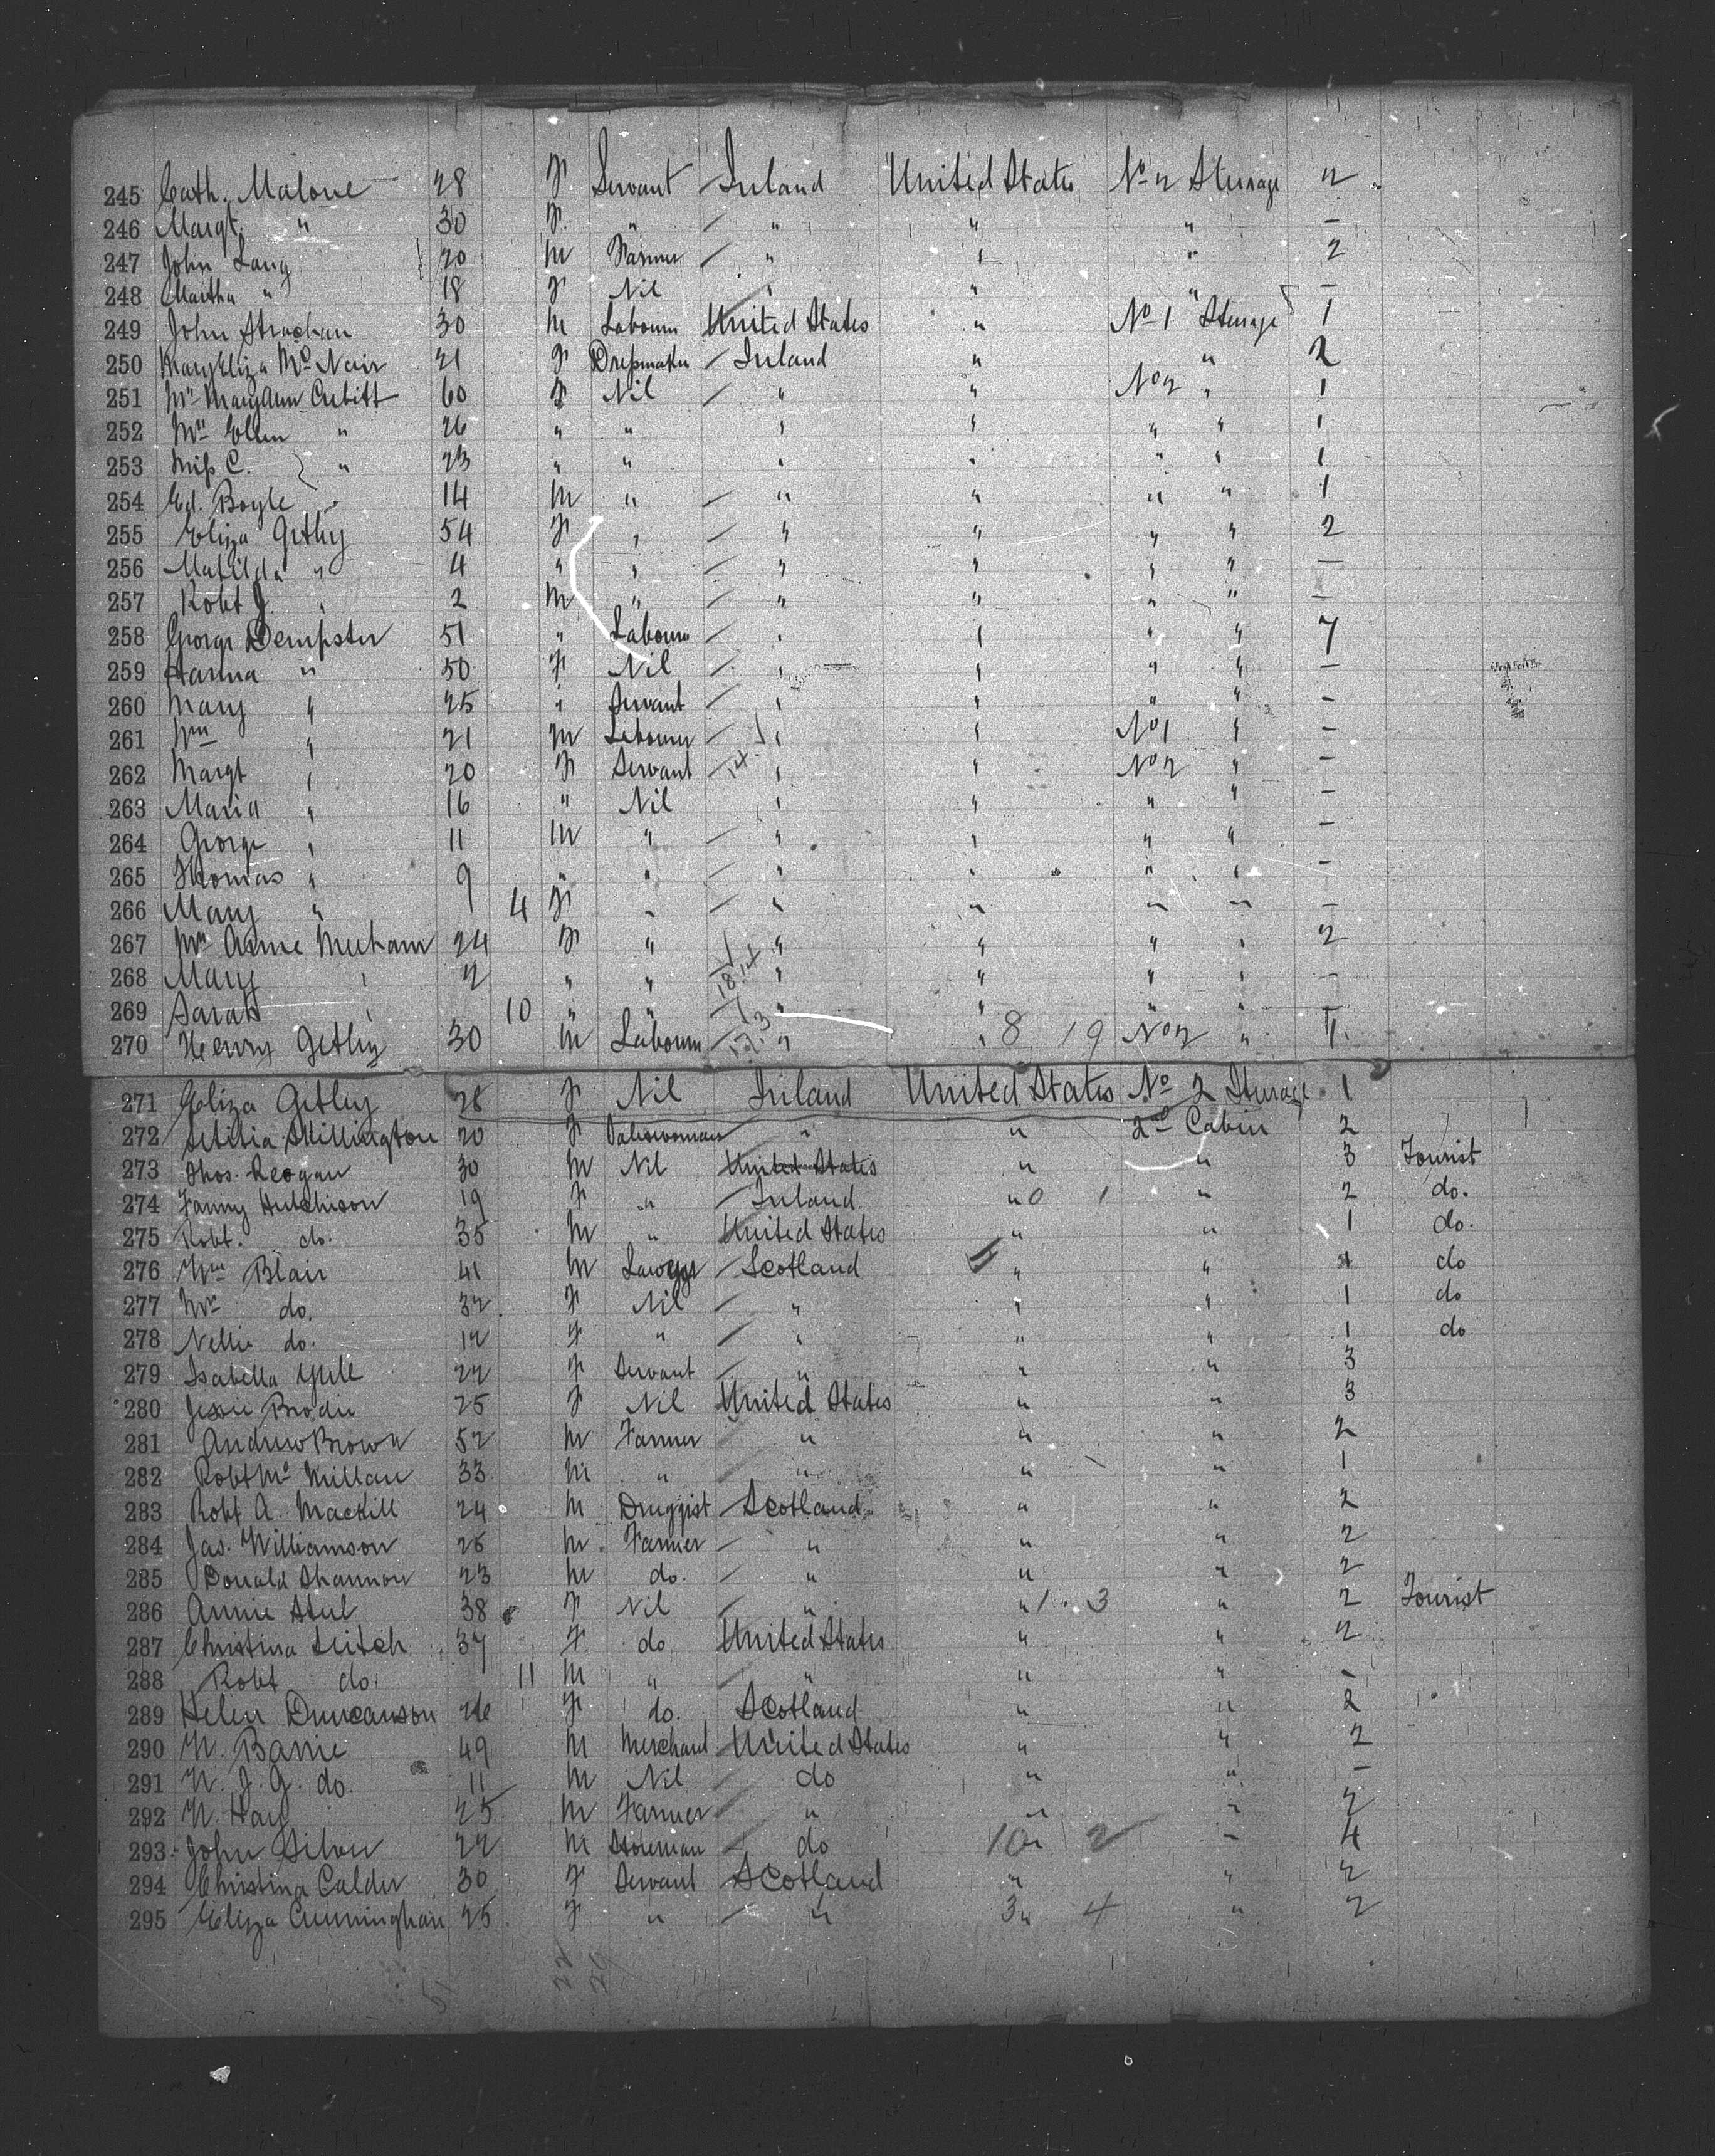 245 Cath. Malone 28 F Servant Ireland United States No 2 Steerage 2
246 Margt. " 30 F. " " " " –
247 John Lang 20 M Farmer " " " 2
248 Martha " 18 F Nil " " " –
249 John Strachan 30 M Labourer United States " No 1 Steerage 1
250 Mary Eliza McNair 21 F Dressmaker Ireland " " 2
251 Mrs Mary Ann Cubitt 60 F Nil " " No 2 " 1
252 Mrs Ellen " 26 " " " " " " 1
253 Miss C. " 23 " " " " " " 1
254 Ed. Boyle 14 M " " " " " 1
255 Eliza Getby 54 F " " " " " 2
256 Matilda " 4 " " " " " " –
257 Robt J. " 2 M " " " " " –
258 George Dempster 51 " Labourer " " " " 7
259 Hanna " 50 F Nil " " " " –
260 Mary " 25 " Servant " " " " –
261 Wm " 21 M Labourer " " No 1 " –
262 Margt " 20 F Servant 14 " " No 2 " –
263 Maria " 16 " Nil " " " " –
264 George " 11 M " " " " " –
265 Thomas " 9 " " " " " " –
266 Mary " 4 F " " " " " –
267 Mrs Annie 24 F " " " " " 2
268 Mary " 2 " " 18.14 " " " " –
269 Sarah " 10 " " " " " " –
270 Henry Getby 30 M Labourer " " 8 19 No 2 " 1
271 Eliza Getby 28 F Nil Ireland United States No 2 Steerage 1
272 Letitia Skillington 20 F Saleswoman " " 2nd Cabin 2
273 Thos. Reogan 30 M Nil United States " " 3 Tourist
274 Fanny Hutchison 19 F " Ireland " 0 1 " 2 do.
275 Robt. do. 35 M " United States " " 1 do.
276 Wm Blair 41 M Lawyer Scotland " " 1 do
277 Mrs do. 32 F Nil " " " 1 do
278 Nellie do. 12 F " " " " 1 do
279 Isabella Yuill 22 F Servant " " " 3
280 Jessie Brodie 25 F Nil United States " " 3
281 Andrew Brown 52 M Farmer " " " 2
282 Robt McMillan 33 M " " " " 1
283 Robt A. Mackill 24 M Druggist Scotland " " 2
284 Jas. Williamson 26 M. Farmer " " " 2
285 Donald Shannon 23 M do. " " " 2
286 Annie Steel 38 F Nil " " 1. 3 " 2 Tourist
287 Christina Leitch 37 F do United States " " 2
288 Robt do. 11 M " " " " –
289 Helen Duncanson 26 F do. Scotland " " 2
290 W. Barrie 49 M Merchant United States " " 2
291 W. J. G. do. 11 M Nil do " " –
292 W. Hay 25 M Farmer " " " 2
293 John Silver 22 M Storeman do 10 " 2 " 4
294 Christina Calder 30 F Servant Scotland " " 2
295 Eliza Cunningham 25 F " " 3 " 4 " 2